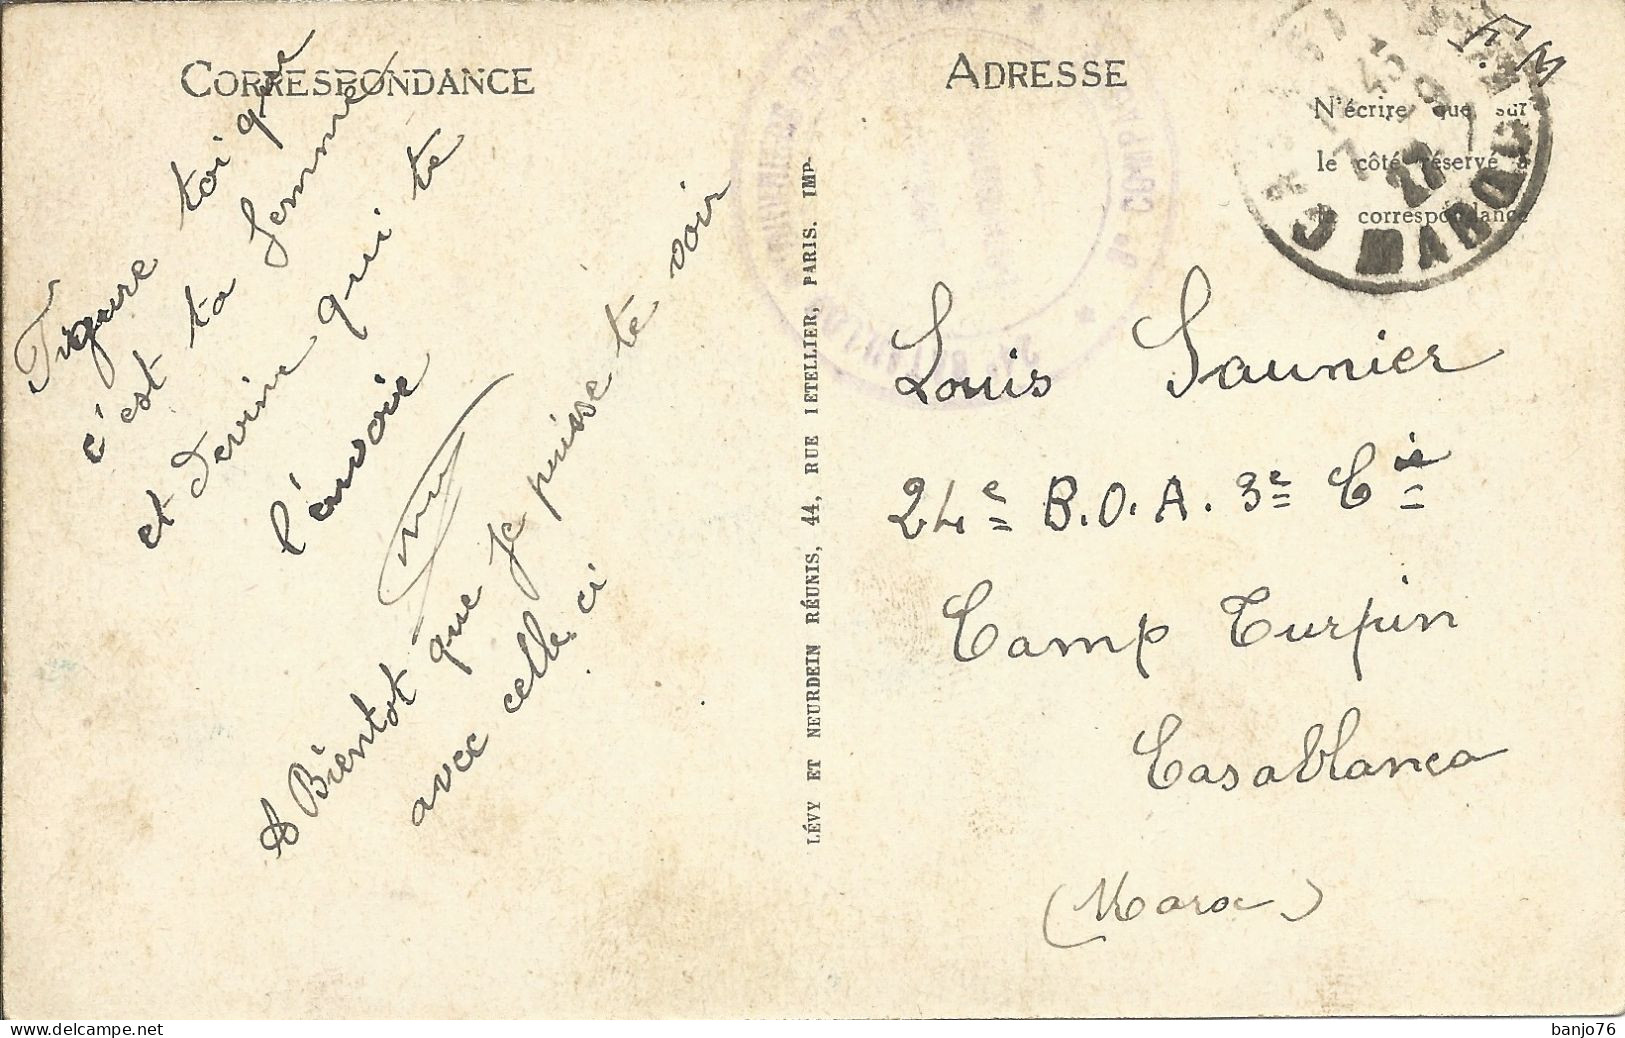 CORRESPONDANCE
Figure toi que
c'est ta femme
et devine qui te
l'envoie
A Bientot que je puisse te voir
avec celle. ci
LÉVY ET NEURDEIN RÉUNIS, 44, RUE LETELLIER, PARIS. IMP
ADRESSE
F.M
N'écrire que sur
le côté réservé à
la correspondance
MAROC
27
8e COMPAGNIE
Louis Saunier
24e B.O.A. 3e Cie
Camp Turpin
Casablanca
(Maroc)
banjo76